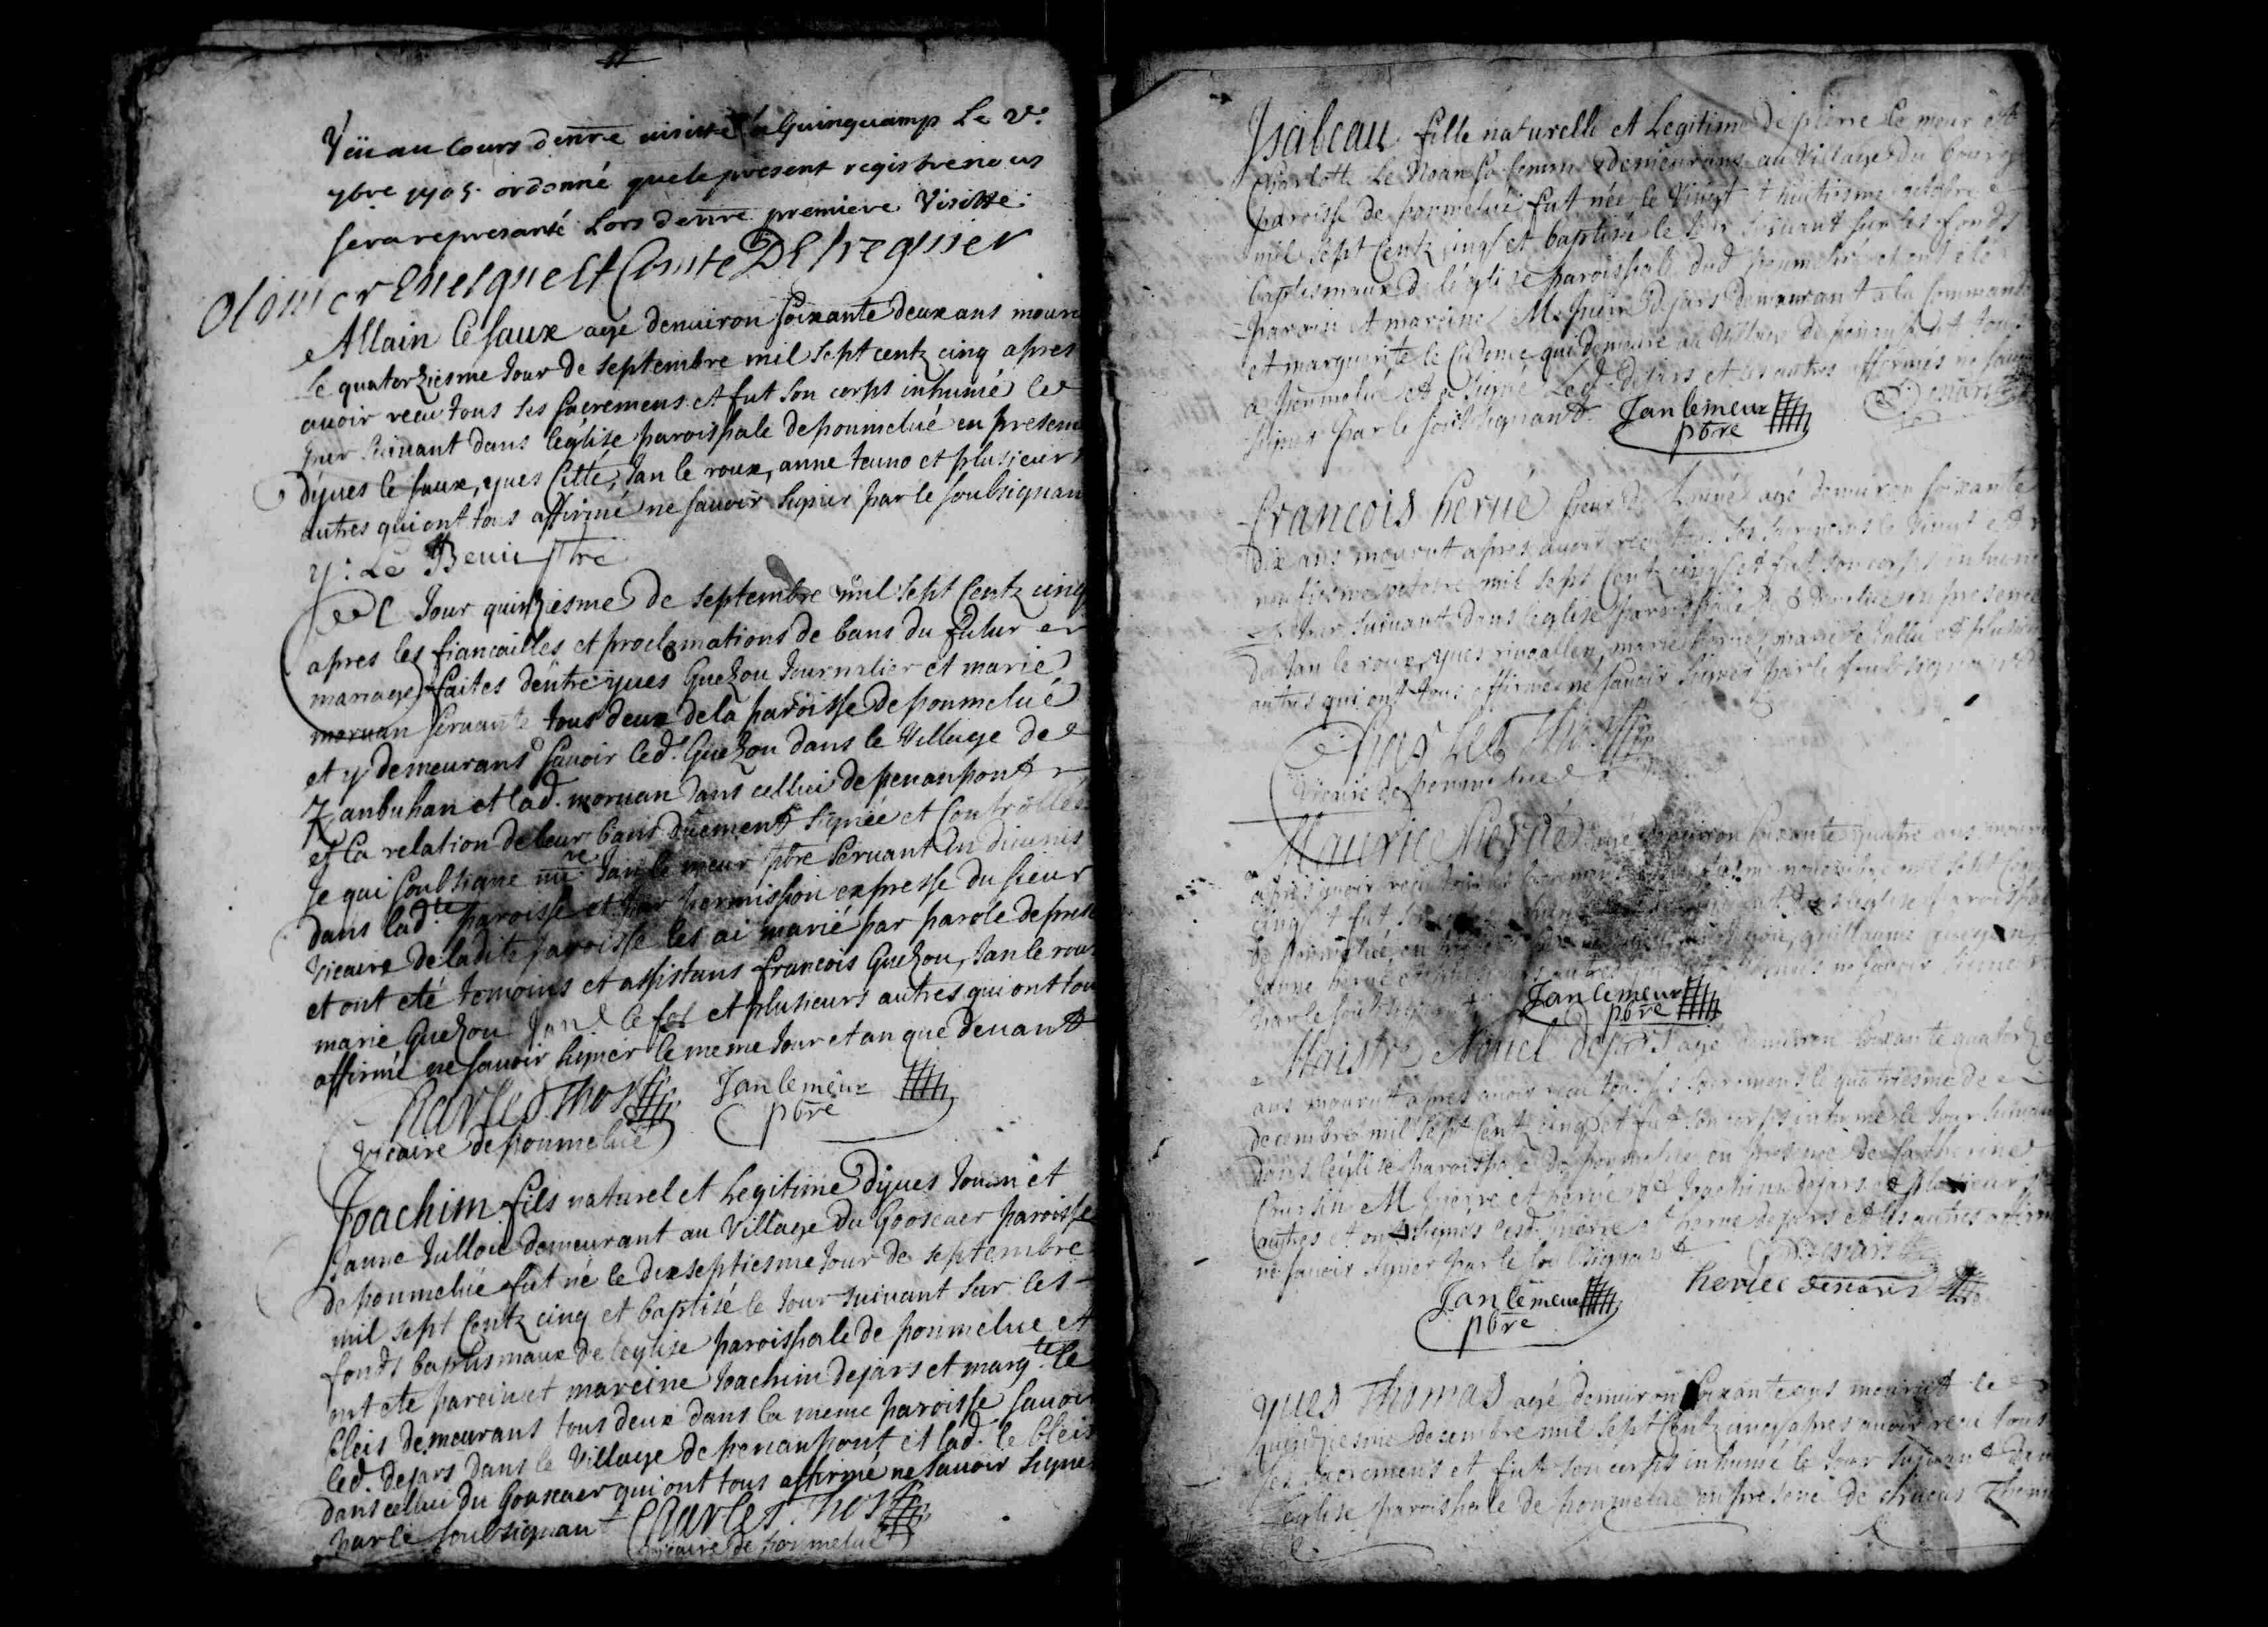 Veü au cours de nre visitte a Guingamp Le 2e.
7bre 1705. ordonné que le present registre nous
sera represanté Lors de nre premiere Visitte
Olivier Evesque Et Comte De Treguier
Allain le faux agé denviron soixante deux ans mouru
le quatorziesme Jour de septembre mil sept centz cinq apres
avoir receu tous ses sacremens et fut son corps inhumé le
jour suivant dans leglise paroissiale de ponmelué en presen
dyves le faux, yves Citté, Jan le roux, anne Jeuno et plusieurs
autres qui ont tous affirmé ne savoir signer par le soubsignan
y: Le Benisttre
Le Jour quinziesme de septembre mil sept Centz cinq
apres les fiancailles et proclamations de bans du futur
mariage faites dentre yves Guezou Journalier et marie
morvan servante tous deux de la paroisse de ponmelué
et y demeurans savoir led. Guezou dans le Village de
Kanbuhan et lad. morvan dans celluei de penanpont
et la relation de leur bans düement signée et Controllée
Je qui soubsigne mre Jan le meur pbre servant en divinis
dans lad.te paroisse et par permission expresse du sieur
Vicaire de ladite paroisse les ai marié par parole de prese
et ont eté temoins et assistans francois Guezou, Jan le rou
marie Guezou Jan le fol et plusieurs autres qui ont tou
affirmé ne savoir signer le meme Jour et an que devant
Charles Thos Jan le meur
Vicaire de ponmelué pbre
Joachim fils naturel et Legitime dyves Jouan et
Janne Jullou demeurant au Village du Goascaer paroisse
de ponmelué fut né le dixseptiesme Jour de septembre
mil sept Centz cinq et baptisé le Jour suivant sur les
fonds baptismaux de leglise paroissiale de ponmelue et
ont ete parein et mareine Joachim dejars et margte le
bleis demeurans tous deux dans la meme paroisse savoir
led. dejars dans le Village de penanpont et lad. le bleis
dans celluei du Goascaer qui ont tous affirmé ne savoir signe
par le soubsignant Charles Thos
vicaire de ponmelué
Isabeau fille naturelle et Legitime de pierre le meur et
Charlotte Le demeurans au Village du bourg
paroisse de ponmelué fut née le Vingt et huitiesme octobre
mil sept Centz cinq et baptisée le Jour suivant sur les fonds
baptismaux de leglise paroissiale dud. ponmelué et ont été
parein et mareine M. pierre dejars demeurant a la Command
et marguerite le qui demeure au Village de
a ponmelué et a signé led. dejars et les autres affirmés ne savoi
signer par le soubsignant Jan le meur
pbre
francois hervé sieur de agé denviron soixante
dix ans mourut apres avoir receu tous ses sacremens le Vingt et
neufiesme octobre mil sept Centz cinq et fut son corps inhumé
le Jour suivant dans leglise paroissiale de ponmelue en presence
de Jan le roux, yves rivoallen, marie hervé, marie le Jullu et plusieu
autres qui ont tous affirmé ne savoir signer par le soubsignant
Charles Thos
Vicaire de ponmelué
Maurice hervé agé denviron soixante quatre ans mouru
apres avoir receu tous ses sacremens novembre mil sept Centz
cinq et fut son corps leglise paroissiale
de ponmelué, en guillaume
Janne hervé et plusieurs autres ne savoir signer
par le soubsignant Jan le meur
pbre
Maistre Nouel dejars agé denviron soixante quatorze
ans mourut apres avoir receu tous ses sacremens le quatriesme de
decembre mil sept Centz cinq et fut son corps inhumé le Jour suivan
dans leglise paroissiale de ponmelue en presence de Catherine
M. pierre et hervé et Joachim dejars et plusieurs
autres et ont signés lesd. pierre et herve dejars et les autres affirm
ne savoir signer par le soubsignant
hervee Desiars
Jan le meur
pbre
yves Thomas agé denviron soixante ans mourut le
quinziesme decembre mil sept Centz cinq apres avoir receu tous
ses sacremens et fut son corps inhumé le Jour suivant dans
leglise paroissiale de ponmelue en presence de Thom